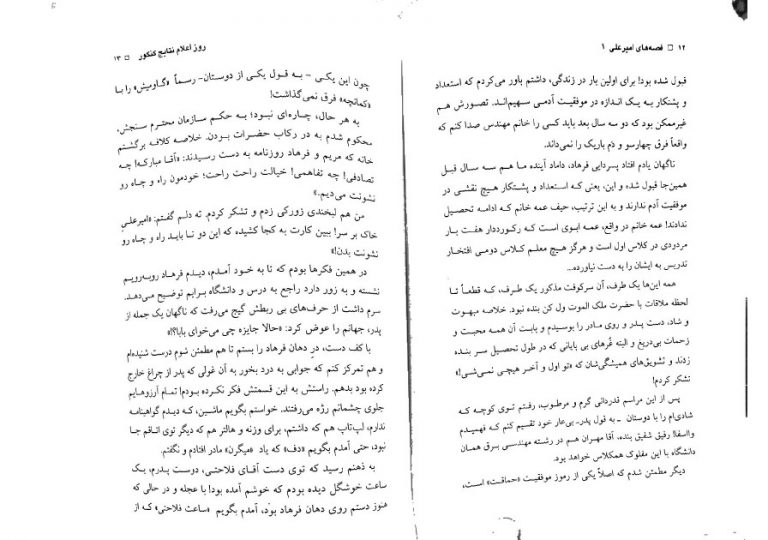 ۱۲ □ قصه‌های امیرعلی ۱
قبول شده بود! برای اولین بار در زندگی، داشتم باور می‌کردم که استعداد
و پشتکار به یک اندازه در موفقیت آدمی سهیم‌اند. تصورش هم
غیرممکن بود که دو سه سال بعد باید کسی را خانم مهندس صدا کنم که
واقعاً فرق چهارسو و دَم باریک را نمی‌داند.
ناگهان یادم افتاد پسردایی فرهاد، داماد آینده ما هم سه سال قبل
همین‌جا قبول شده و این، یعنی که استعداد و پشتکار هیچ نقشی در
موفقیت آدم ندارند و به این ترتیب، حیف عمه خانم که ادامه تحصیل
ندادند! عمه خانم در واقع، عمه ابوی است که رکورددار هفت بار
مردودی در کلاس اول است و هرگز هیچ معلم کلاس دومی افتخار
تدریس به ایشان را به دست نیاورده..
همه این‌ها یک طرف، آن سرکوفت مذکور یک طرف، که قطعاً تا
لحظه ملاقات با حضرت ملک الموت ول کن بنده نبود. خلاصه مبهوت
و شاد، دست پدر و روی مادر را بوسیدم و بابت آن همه محبت و
زحمات بی‌دریغ و البته غُرهای بی پایانی که در طول تحصیل سر بنده
زدند و تشویق‌های همیشگی‌شان که «تو اول و آخر هیچی نمی‌شی!»
تشکر کردم!
پس از این مراسم قدردانی گرم و مرطوب، رفتم توی کوچه که
شادی‌ام را با دوستان ـ به قول پدر ـ بی‌عار خود تقسیم کنم که فهمیدم
وااسفا! رفیق شفیق بنده، آقا مهران هم در رشته مهندسی برق همان
دانشگاه با این مفلوک همکلاس خواهد بود.
دیگر مطمئن شدم که اصلاً یکی از رموز موفقیت «حماقت» است،
روز اعلام نتایج کنکور □ ۱۳
چون این یکی - به قول یکی از دوستان- رسماً «گاومیش» را با
«کمانچه» فرق نمی‌گذاشت!
به هر حال، چاره‌ای نبود؛ به حکم سازمان محترم سنجش،
محکوم شدم به در رکاب حضرات بودن. خلاصه کلافه برگشتم
خانه که مریم و فرهاد روزنامه به دست رسیدند: «آقا مبارکه! چه
تصادفی! چه تفاهمی! خیالت راحت راحت؛ خودمون راه و چاه رو
نشونت می‌دیم.»
من هم لبخندی زورکی زدم و تشکر کردم. ته دلم گفتم: «امیرعلی
خاک بر سر! ببین کارت به کجا کشیده که این دو تا باید راه و چاه رو
نشونت بدن!»
در همین فکرها بودم که تا به خود آمدم، دیدم فرهاد روبه‌رویم
نشسته و به زور دارد راجع به درس و دانشگاه برایم توضیح می‌دهد.
سرم داشت از حرف‌های بی ربطش گیج می‌رفت که ناگهان یک جمله از
پدر، جهانم را عوض کرد: «حالا جایزه چی می‌خوای بابا؟!»
با کف دست، درِ دهان فرهاد را بستم تا هم مطمئن شوم درست شنیده‌ام
و هم تمرکز کنم که جوابی به درد بخور به آن غولی که پدر از چراغ خارج
کرده بود بدهم. راستش به این قسمتش فکر نکرده بودم! تمام آرزوهایم
جلوی چشمانم رژه می‌رفتند. خواستم بگویم ماشین، که دیدم گواهینامه
ندارم، لپ‌تاپ هم که داشتم، برای وزنه و هالتر هم که دیگر توی اتاقم جا
نبود، حتی آمدم بگویم «دف» که یاد «میگرن» مادر افتادم و نگفتم.
به ذهنم رسید که توی دست آقای فلاحتی، دوست پدرم، یک
ساعت خوشگل دیده بودم که خوشم آمده بود! با عجله و در حالی که
هنوز دستم روی دهان فرهاد بود، آمدم بگویم «ساعت فلاحتی» که از